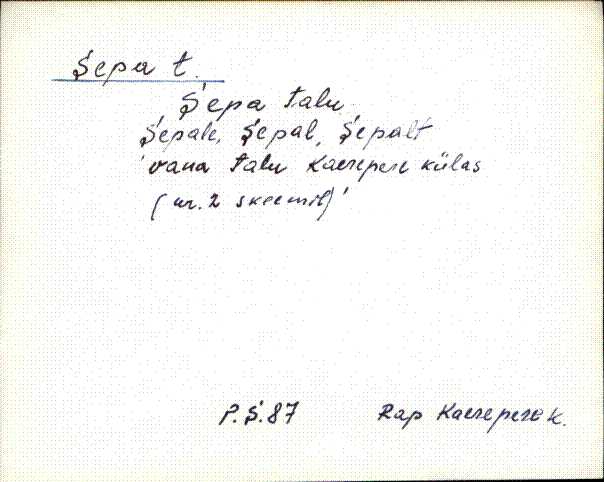 Sepa t.
Sepa talu
Sepale, Sepal, Sepalt
'vana talu Kaerepere külas
(nr. 2 skeemil)'
P.S.87 Rap Kaerepere k.